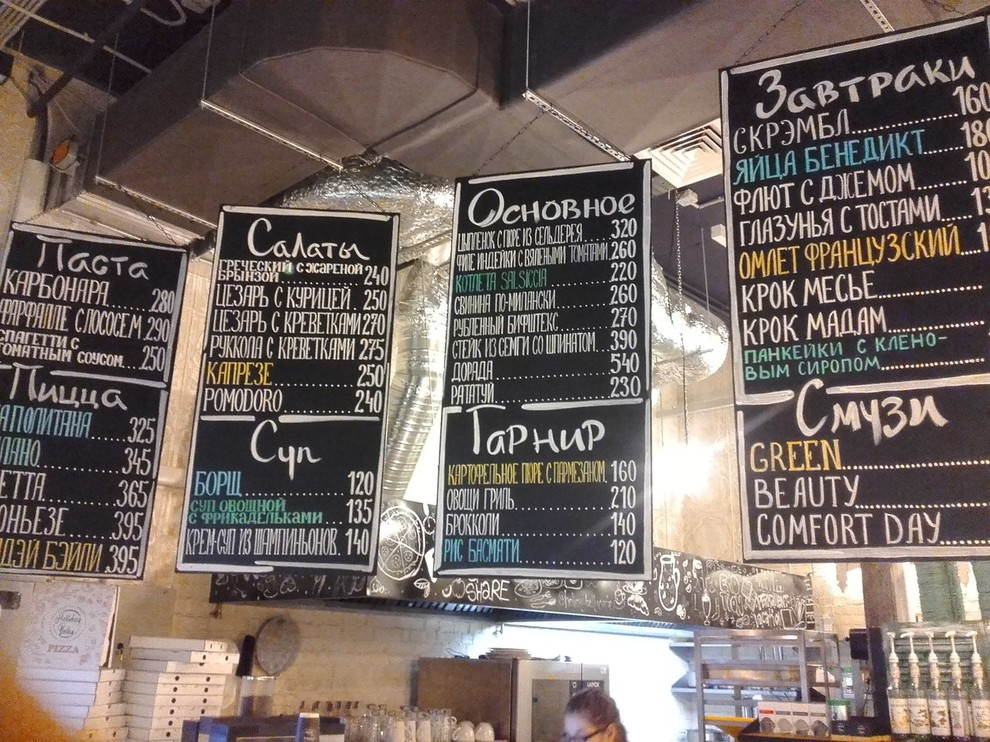 Паста
КАРБОНАРА 280
ФАРФАЛЛЕ С ЛОСОСЕМ 290
СПАГЕТТИ С
ТОМАТНЫМ СОУСОМ 250
Пицца
325
345
365
395
395
Салаты
ГРЕЧЕСКИЙ С ЖАРЕНОЙ
БРЫНЗОЙ 240
ЦЕЗАРЬ С КУРИЦЕЙ 250
ЦЕЗАРЬ С КРЕВЕТКАМИ 270
РУККОЛА С КРЕВЕТКАМИ 275
КАПРЕЗЕ 250
POMODORO 240
Суп
БОРЩ 120
СУП ОВОЩНОЙ
С ФРИКАДЕЛЬКАМИ 135
КРЕМ-СУП ИЗ ШАМПИНЬОНОВ 140
Основное
ЦЫПЛЕНОК С ПЮРЕ ИЗ СЕЛЬДЕРЕЯ 320
ФИЛЕ ИНДЕЙКИ С ВЯЛЕНЫМИ ТОМАТАМИ 260
КОТЛЕТА SALSICCIA 220
СВИНИНА ПО-МИЛАНСКИ 260
РУБЛЕННЫЙ БИФШТЕКС 270
СТЕЙК ИЗ СЕМГИ СО ШПИНАТОМ 390
ДОРАДА 540
РАТАТУЙ 230
Гарнир
КАРТОФЕЛЬНОЕ ПЮРЕ С ПАРМЕЗАНОМ 160
ОВОЩИ ГРИЛЬ 210
БРОККОЛИ 140
РИС БАСМАТИ 120
Завтраки
СКРЭМБЛ 160
ЯЙЦА БЕНЕДИКТ
ФЛЮТ С ДЖЕМОМ
ГЛАЗУНЬЯ С ТОСТАМИ
ОМЛЕТ ФРАНЦУЗСКИЙ
КРОК МЕСЬЕ
КРОК МАДАМ
ПАНКЕЙКИ С КЛЕНО-
ВЫМ СИРОПОМ
Смузи
GREEN
BEAUTY
COMFORT DAY
SHARE
PIZZA